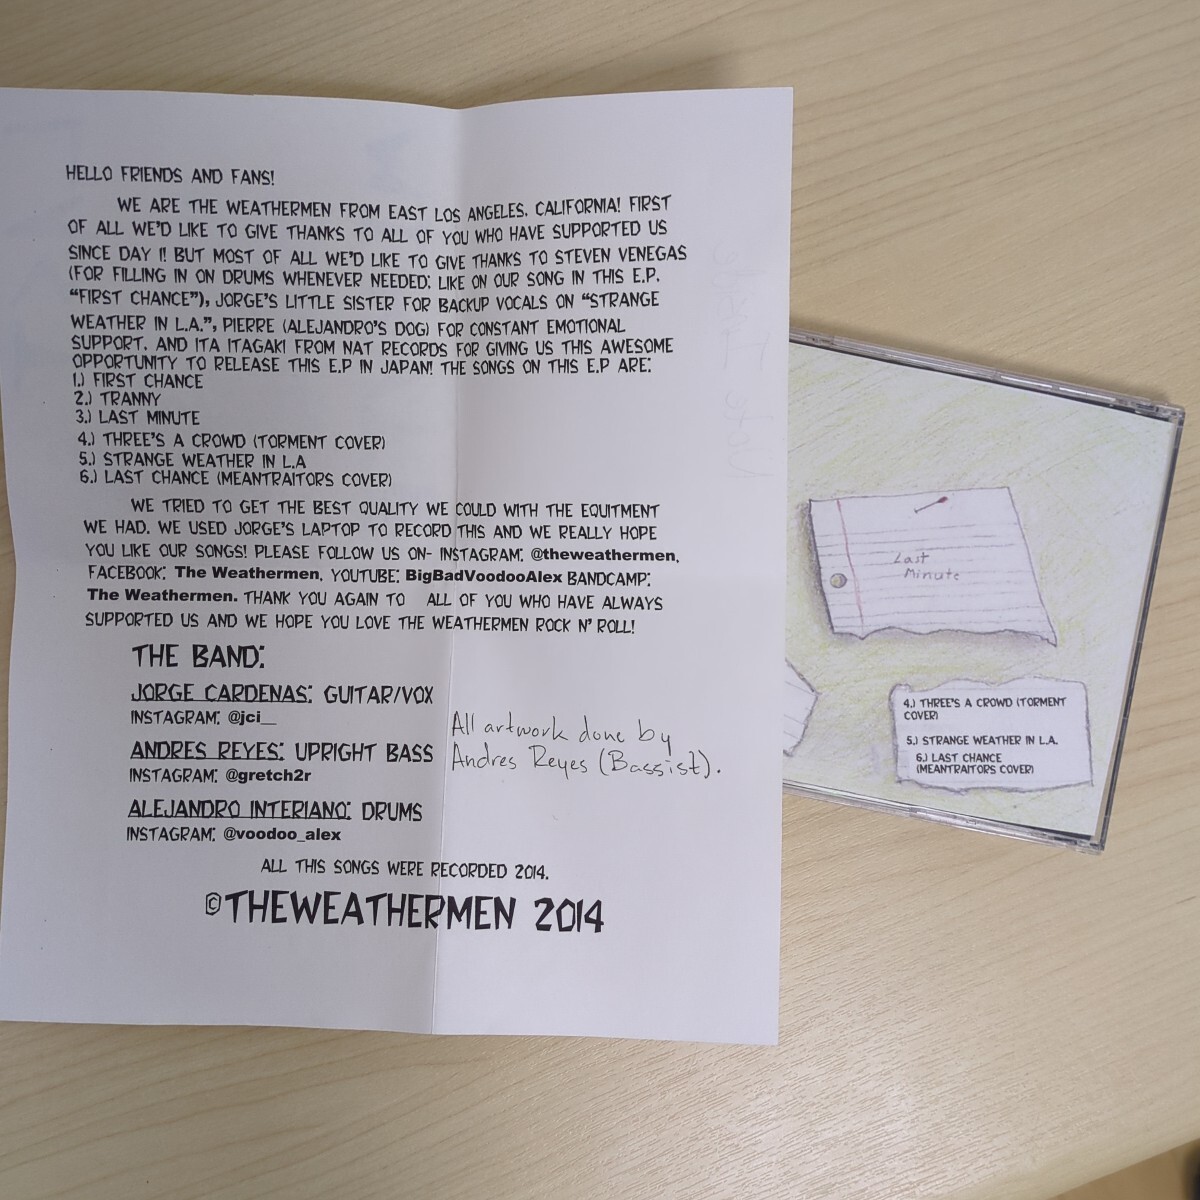 HELLO FRIENDS AND FANS!
WE ARE THE WEATHERMEN FROM EAST LOS ANGELES, CALIFORNIA! FIRST
OF ALL WE'D LIKE TO GIVE THANKS TO ALL OF YOU WHO HAVE SUPPORTED US
SINCE DAY 1! BUT MOST OF ALL WE'D LIKE TO GIVE THANKS TO STEVEN VENEGAS
(FOR FILLING IN ON DRUMS WHENEVER NEEDED; LIKE ON OUR SONG IN THIS E.P.
"FIRST CHANCE"), JORGE'S LITTLE SISTER FOR BACKUP VOCALS ON "STRANGE
WEATHER IN L.A.", PIERRE (ALEJANDRO'S DOG) FOR CONSTANT EMOTIONAL
SUPPORT, AND ITA ITAGAKI FROM NAT RECORDS FOR GIVING US THIS AWESOME
OPPORTUNITY TO RELEASE THIS E.P IN JAPAN! THE SONGS ON THIS E.P ARE:
1.) FIRST CHANCE
2.) TRANNY
3.) LAST MINUTE
4.) THREE'S A CROWD (TORMENT COVER)
5.) STRANGE WEATHER IN L.A
6.) LAST CHANCE (MEANTRAITORS COVER)
WE TRIED TO GET THE BEST QUALITY WE COULD WITH THE EQUITMENT
WE HAD. WE USED JORGE'S LAPTOP TO RECORD THIS AND WE REALLY HOPE
YOU LIKE OUR SONGS! PLEASE FOLLOW US ON- INSTAGRAM: @theweathermen,
FACEBOOK: The Weathermen, YOUTUBE: BigBadVoodooAlex BANDCAMP:
The Weathermen. THANK YOU AGAIN TO ALL OF YOU WHO HAVE ALWAYS
SUPPORTED US AND WE HOPE YOU LOVE THE WEATHERMEN ROCK N' ROLL!
THE BAND:
JORGE CARDENAS: GUITAR/VOX
INSTAGRAM: @jci__
ANDRES REYES: UPRIGHT BASS
INSTAGRAM: @gretch2r
ALEJANDRO INTERIANO: DRUMS
INSTAGRAM: @voodoo_alex
All artwork done by
Andres Reyes (Bassist).
ALL THIS SONGS WERE RECORDED 2014.
©THEWEATHERMEN 2014
Last
Minute
4.) THREE'S A CROWD (TORMENT
COVER)
5.) STRANGE WEATHER IN L.A.
6.) LAST CHANCE
(MEANTRAITORS COVER)